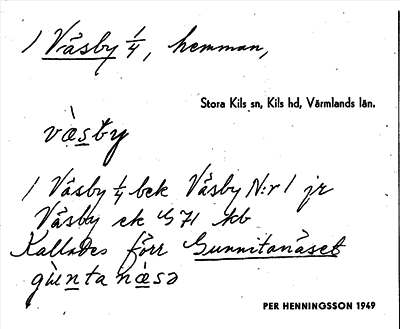 1 Väsby 1/4, hemman,
Stora Kils sn, Kils hd, Värmlands län.
vä̀sby
1 Väsby 1/4 bek Väsby N:r 1 jr
Väsby ek G 71 kb
Kallades förr Gunnitanäset
gùnta nä̀sə
PER HENNINGSSON 1949